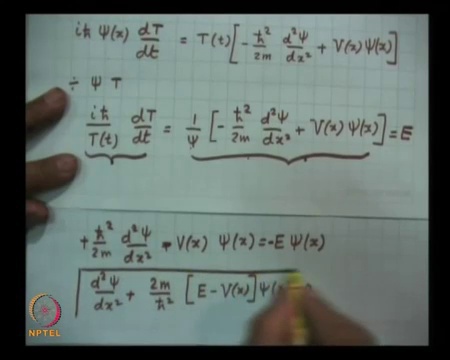 iħ Ψ(x) dT/dt = T(t)[-ħ²/2m d²Ψ/dx² + V(x)Ψ(x)]
÷ Ψ T
iħ/T(t) dT/dt = 1/Ψ [-ħ²/2m d²Ψ/dx² + V(x)Ψ(x)] = E
+ħ²/2m d²Ψ/dx² - V(x) Ψ(x) = -E Ψ(x)
d²Ψ/dx² + 2m/ħ² [E - V(x)]Ψ(
NPTEL